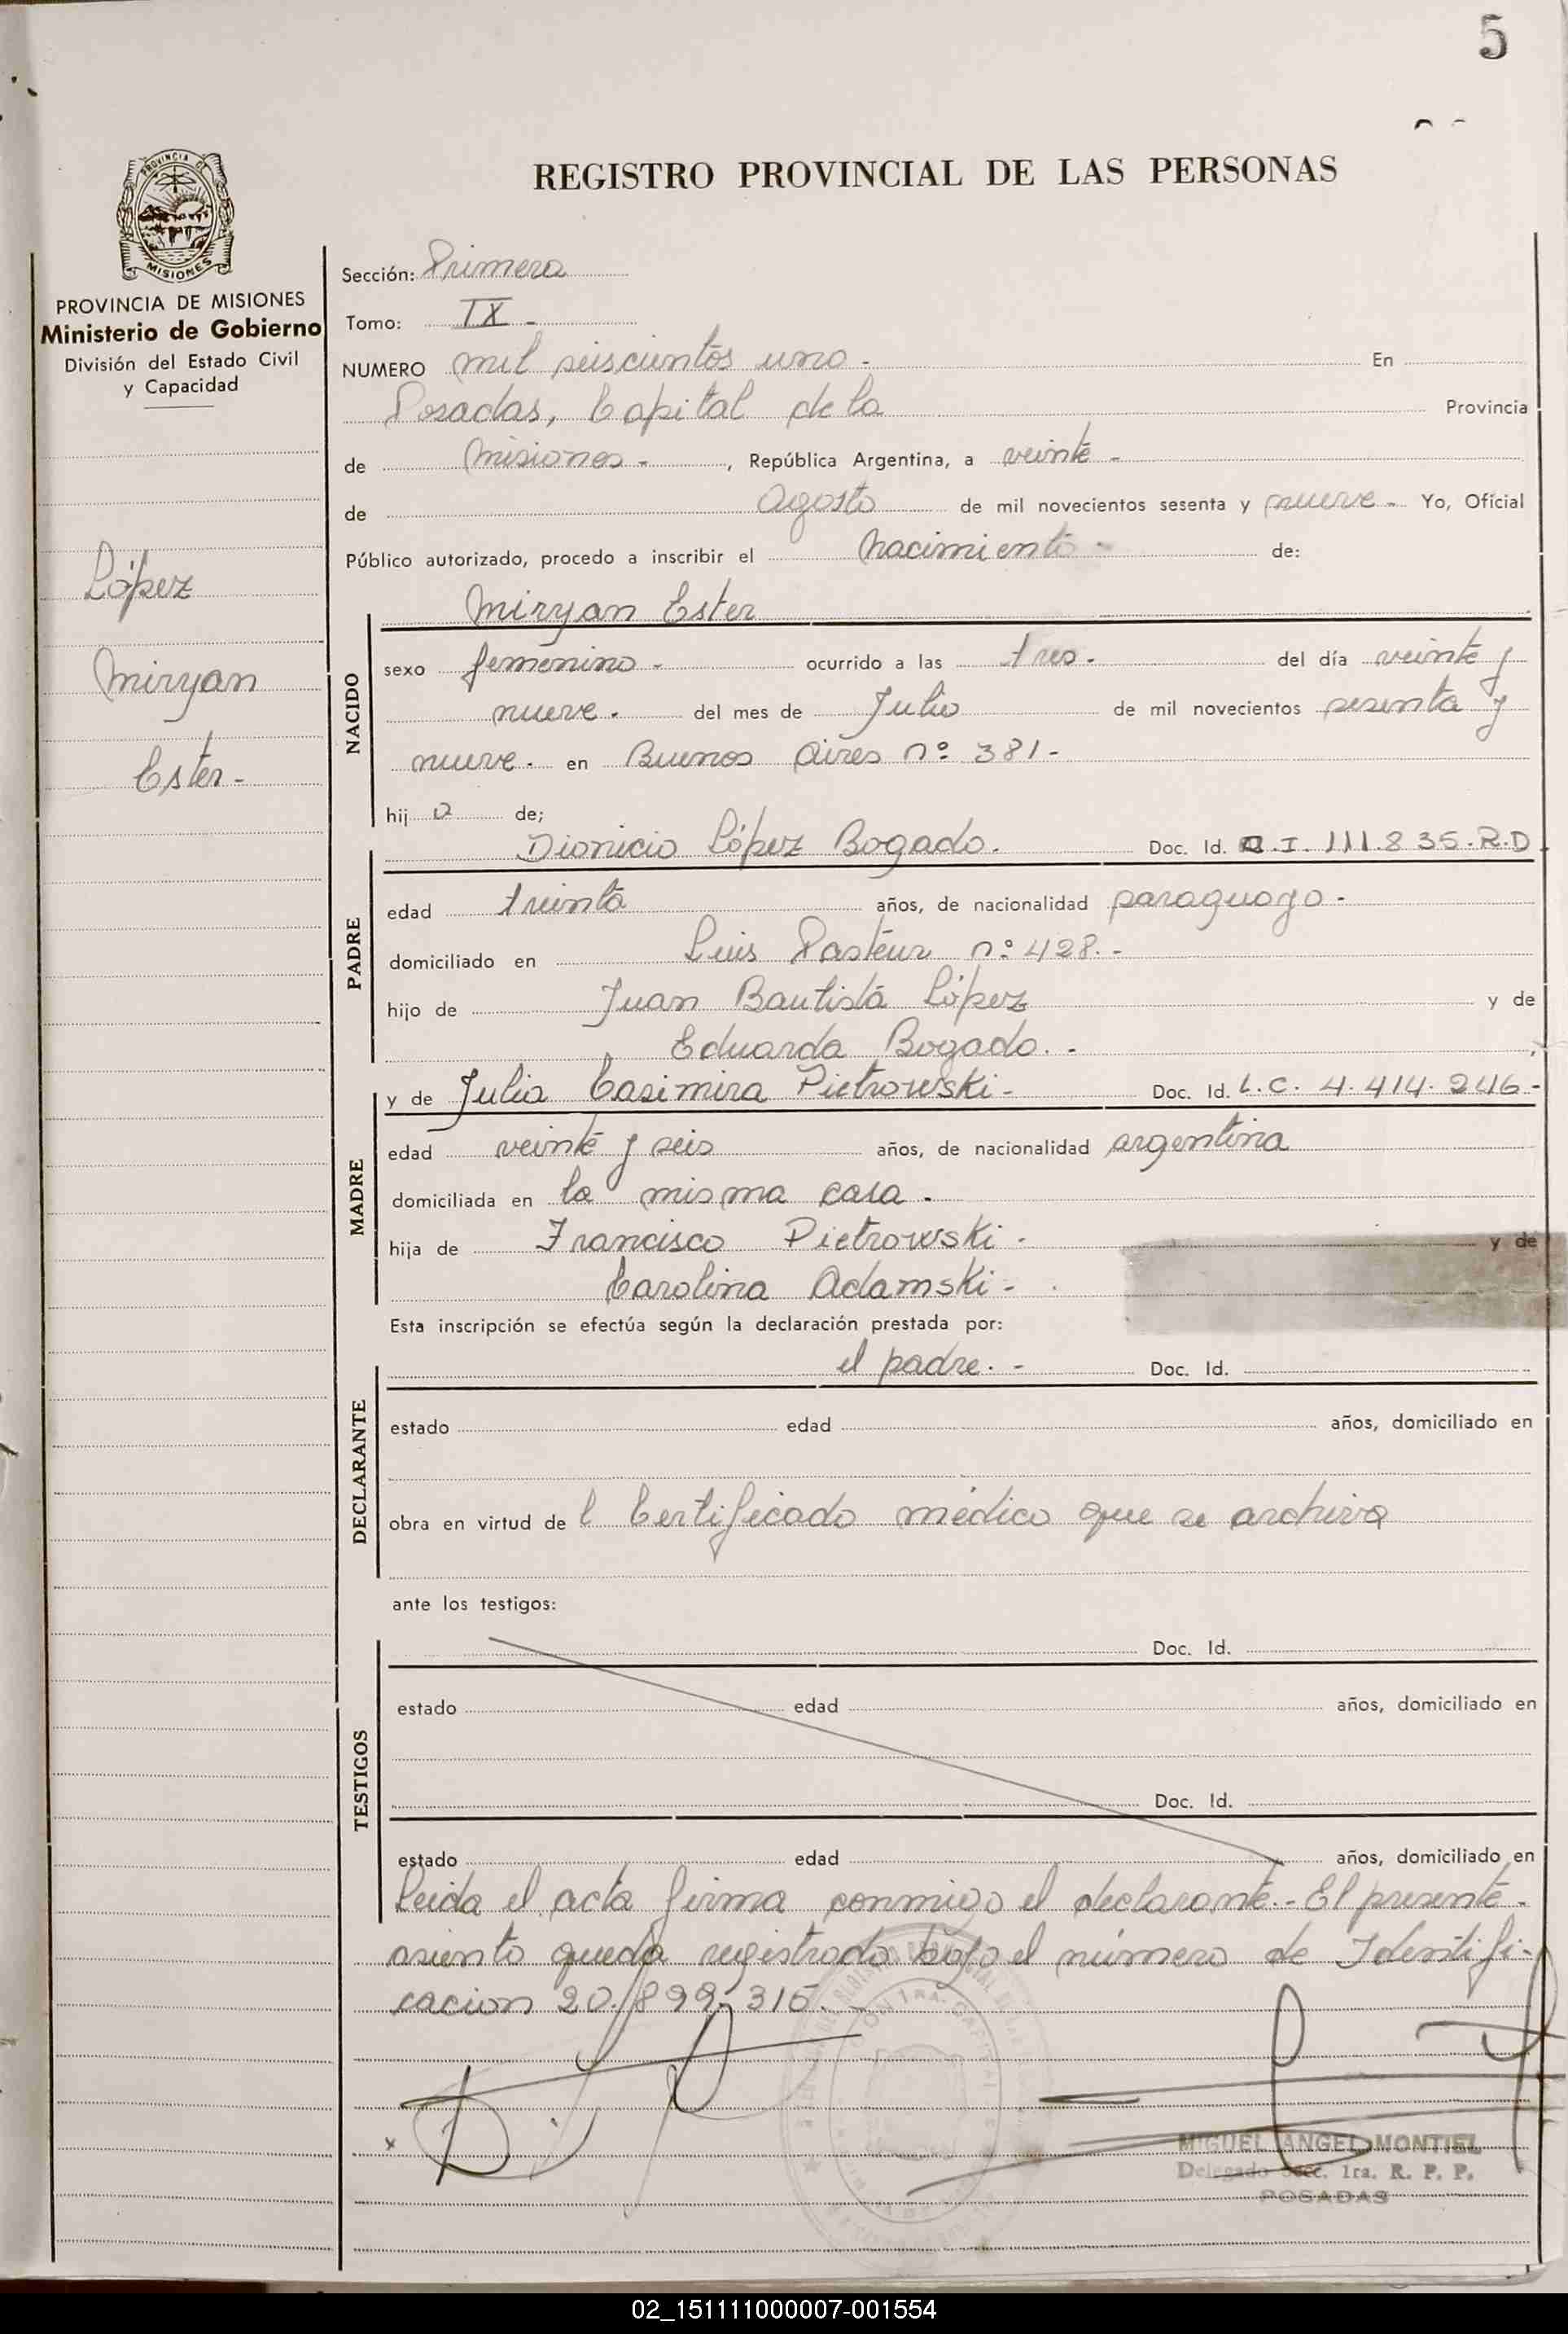 5
REGISTRO PROVINCIAL DE LAS PERSONAS
PROVINCIA DE
MISIONES
PROVINCIA DE MISIONES
Ministerio de Gobierno
División del Estado Civil
y Capacidad
López
Miryan
Ester-
Sección: Primera
Tomo: IX -
NUMERO mil seiscientos uno - En
Posadas, Capital de la Provincia
de Misiones - , República Argentina, a veinte -
de Agosto de mil novecientos sesenta y nueve - Yo, Oficial
Público autorizado, procedo a inscribir el nacimiento - de:
Miryan Ester
NACIDO
sexo femenino - ocurrido a las tres - del día veinte y
nueve - del mes de Julio de mil novecientos sesenta y
nueve - en Buenos Aires nº 381 -
hij a de;
PADRE
Dionicio López Bogado. Doc. Id. C.I. 111.835.R.D
edad treinta años, de nacionalidad paraguayo -
domiciliado en Luis Pasteur nº 428. -
hijo de Juan Bautista López y de
Eduarda Bogado. -
MADRE
y de Julia Casimira Pietrowski - Doc. Id. L.C. 4.414.246.-
edad veinte y seis años, de nacionalidad argentina
domiciliada en la misma casa -
hija de Francisco Pietrowski - y de
Carolina Adamski -
Esta inscripción se efectúa según la declaración prestada por:
DECLARANTE
el padre. - Doc. Id.
estado edad años, domiciliado en
obra en virtud de l Certificado médico que se archiva
ante los testigos:
TESTIGOS
Doc. Id.
estado edad años, domiciliado en
Doc. Id.
estado edad años, domiciliado en
Leida el acta firma conmigo el declarante.- El presente
asiento queda registrado bajo el número de Identifi-
cacion 20.899.315. -
MIGUEL ANGEL MONTIEL
Delegado Secc. 1ra. R. P. P.
POSADAS
02_151111000007-001554